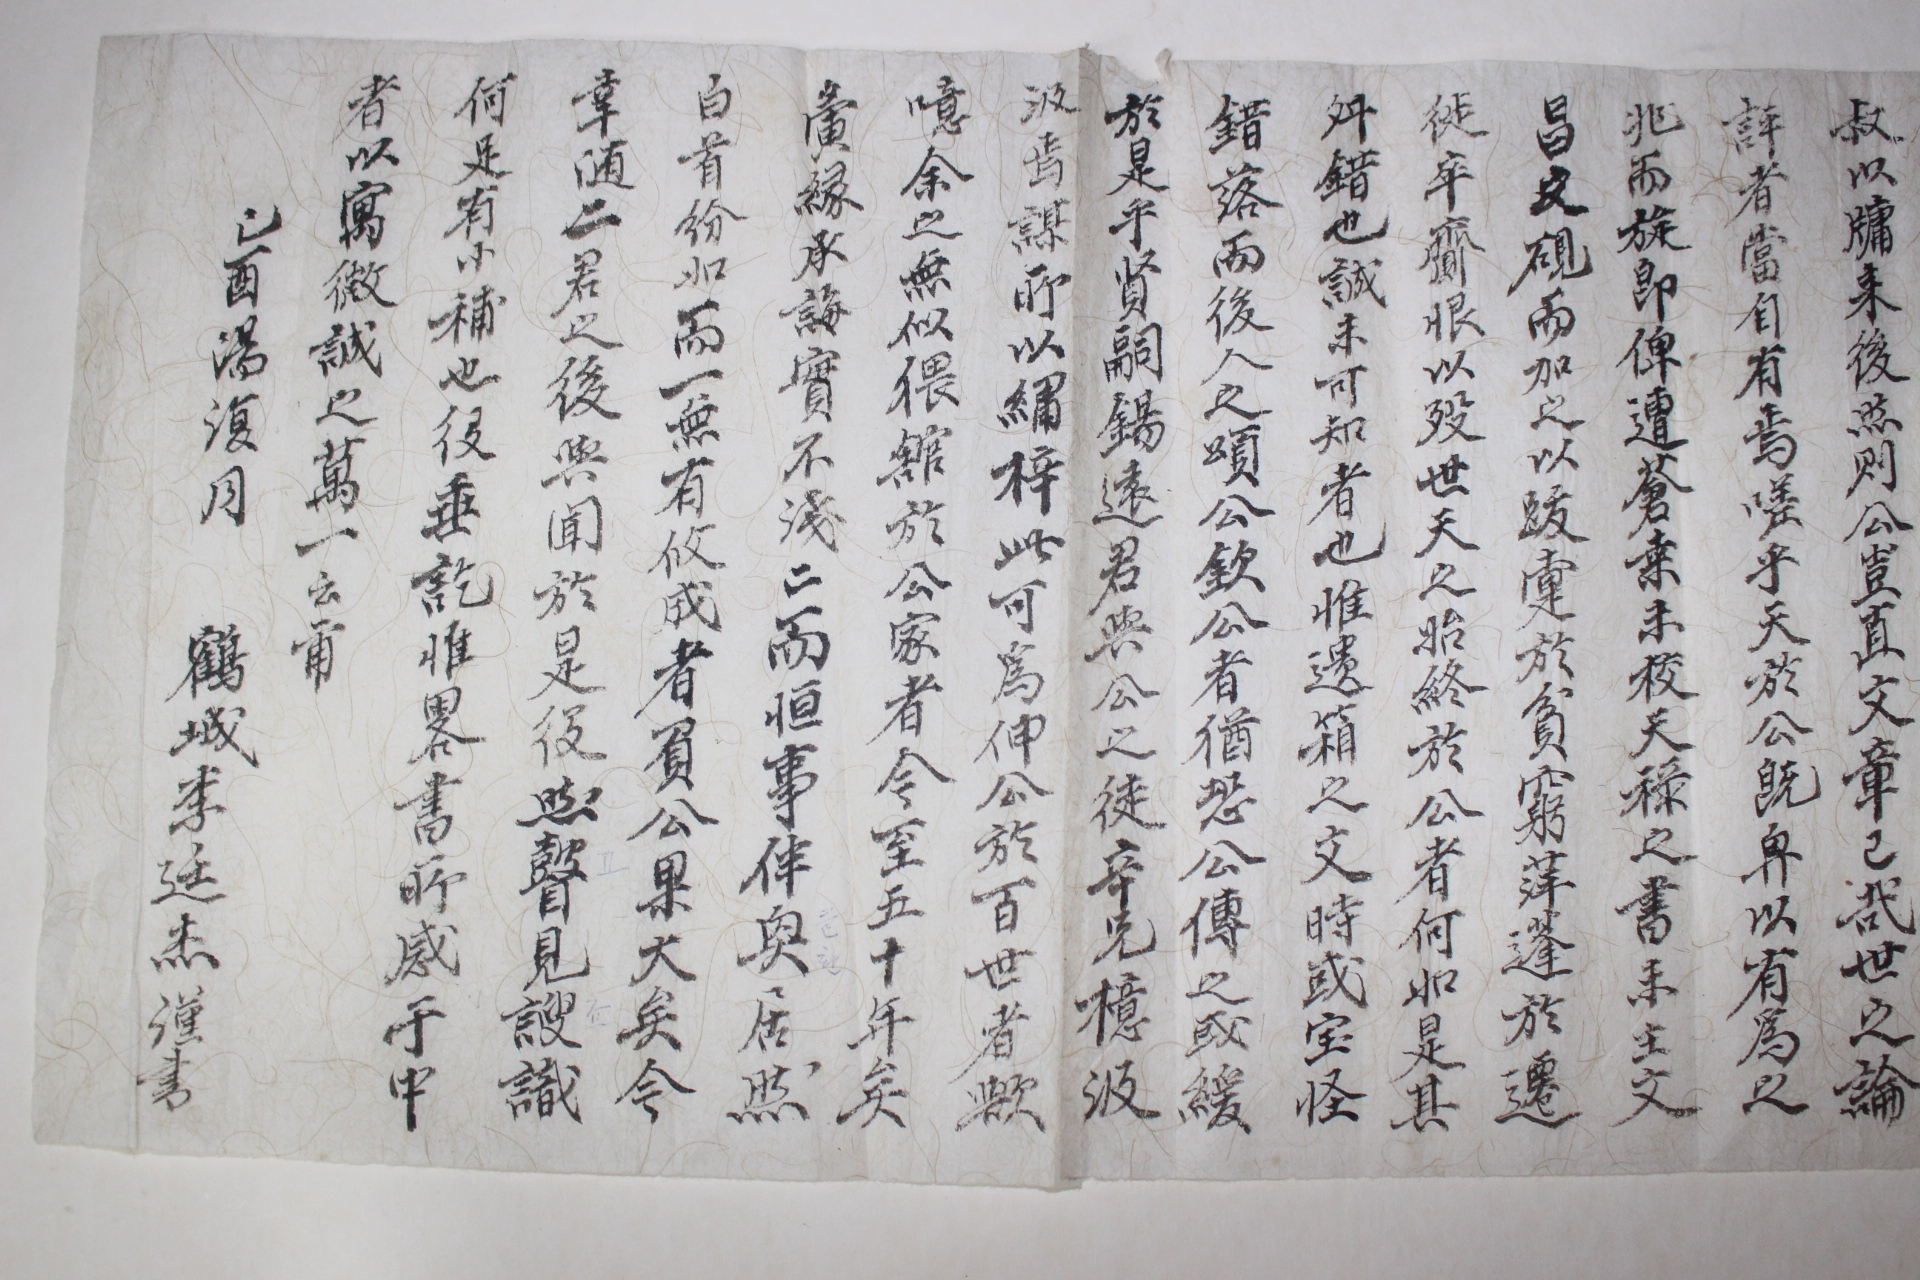 叔以牗來後然則公豈直文章已哉世之論
評者當自有焉嗟乎天於公旣畀以有爲之
兆而旋卽俾遭蒼桒未校天祿之書未主文
昌文硯而加之以跋疐於貧窮萍蓬於遷
徙卒齎恨以歿世天之始終於公者何如是其
舛錯也誠未可知者也惟遺箱之文時或宝怪
錯落而後人之頌公欽公者猶恐公傳之或緩
於是乎賢嗣錫遠君與公之徒辛兄檍汲
汲焉謀所以繡梓此可爲伸公於百世者歟
噫余之無似猥舘於公家者今至五十年矣
夤緣承誨實不淺二而恒事伴奐居然
白首紛如而一無有攸成者負公果大矣今
幸随二君之後與聞於是役然瞽見謏識
何足有小補也役垂訖惟畧書所感于中
者以寓微誠之萬一云甫
己酉湯復月
鶴城李廷杰謹書